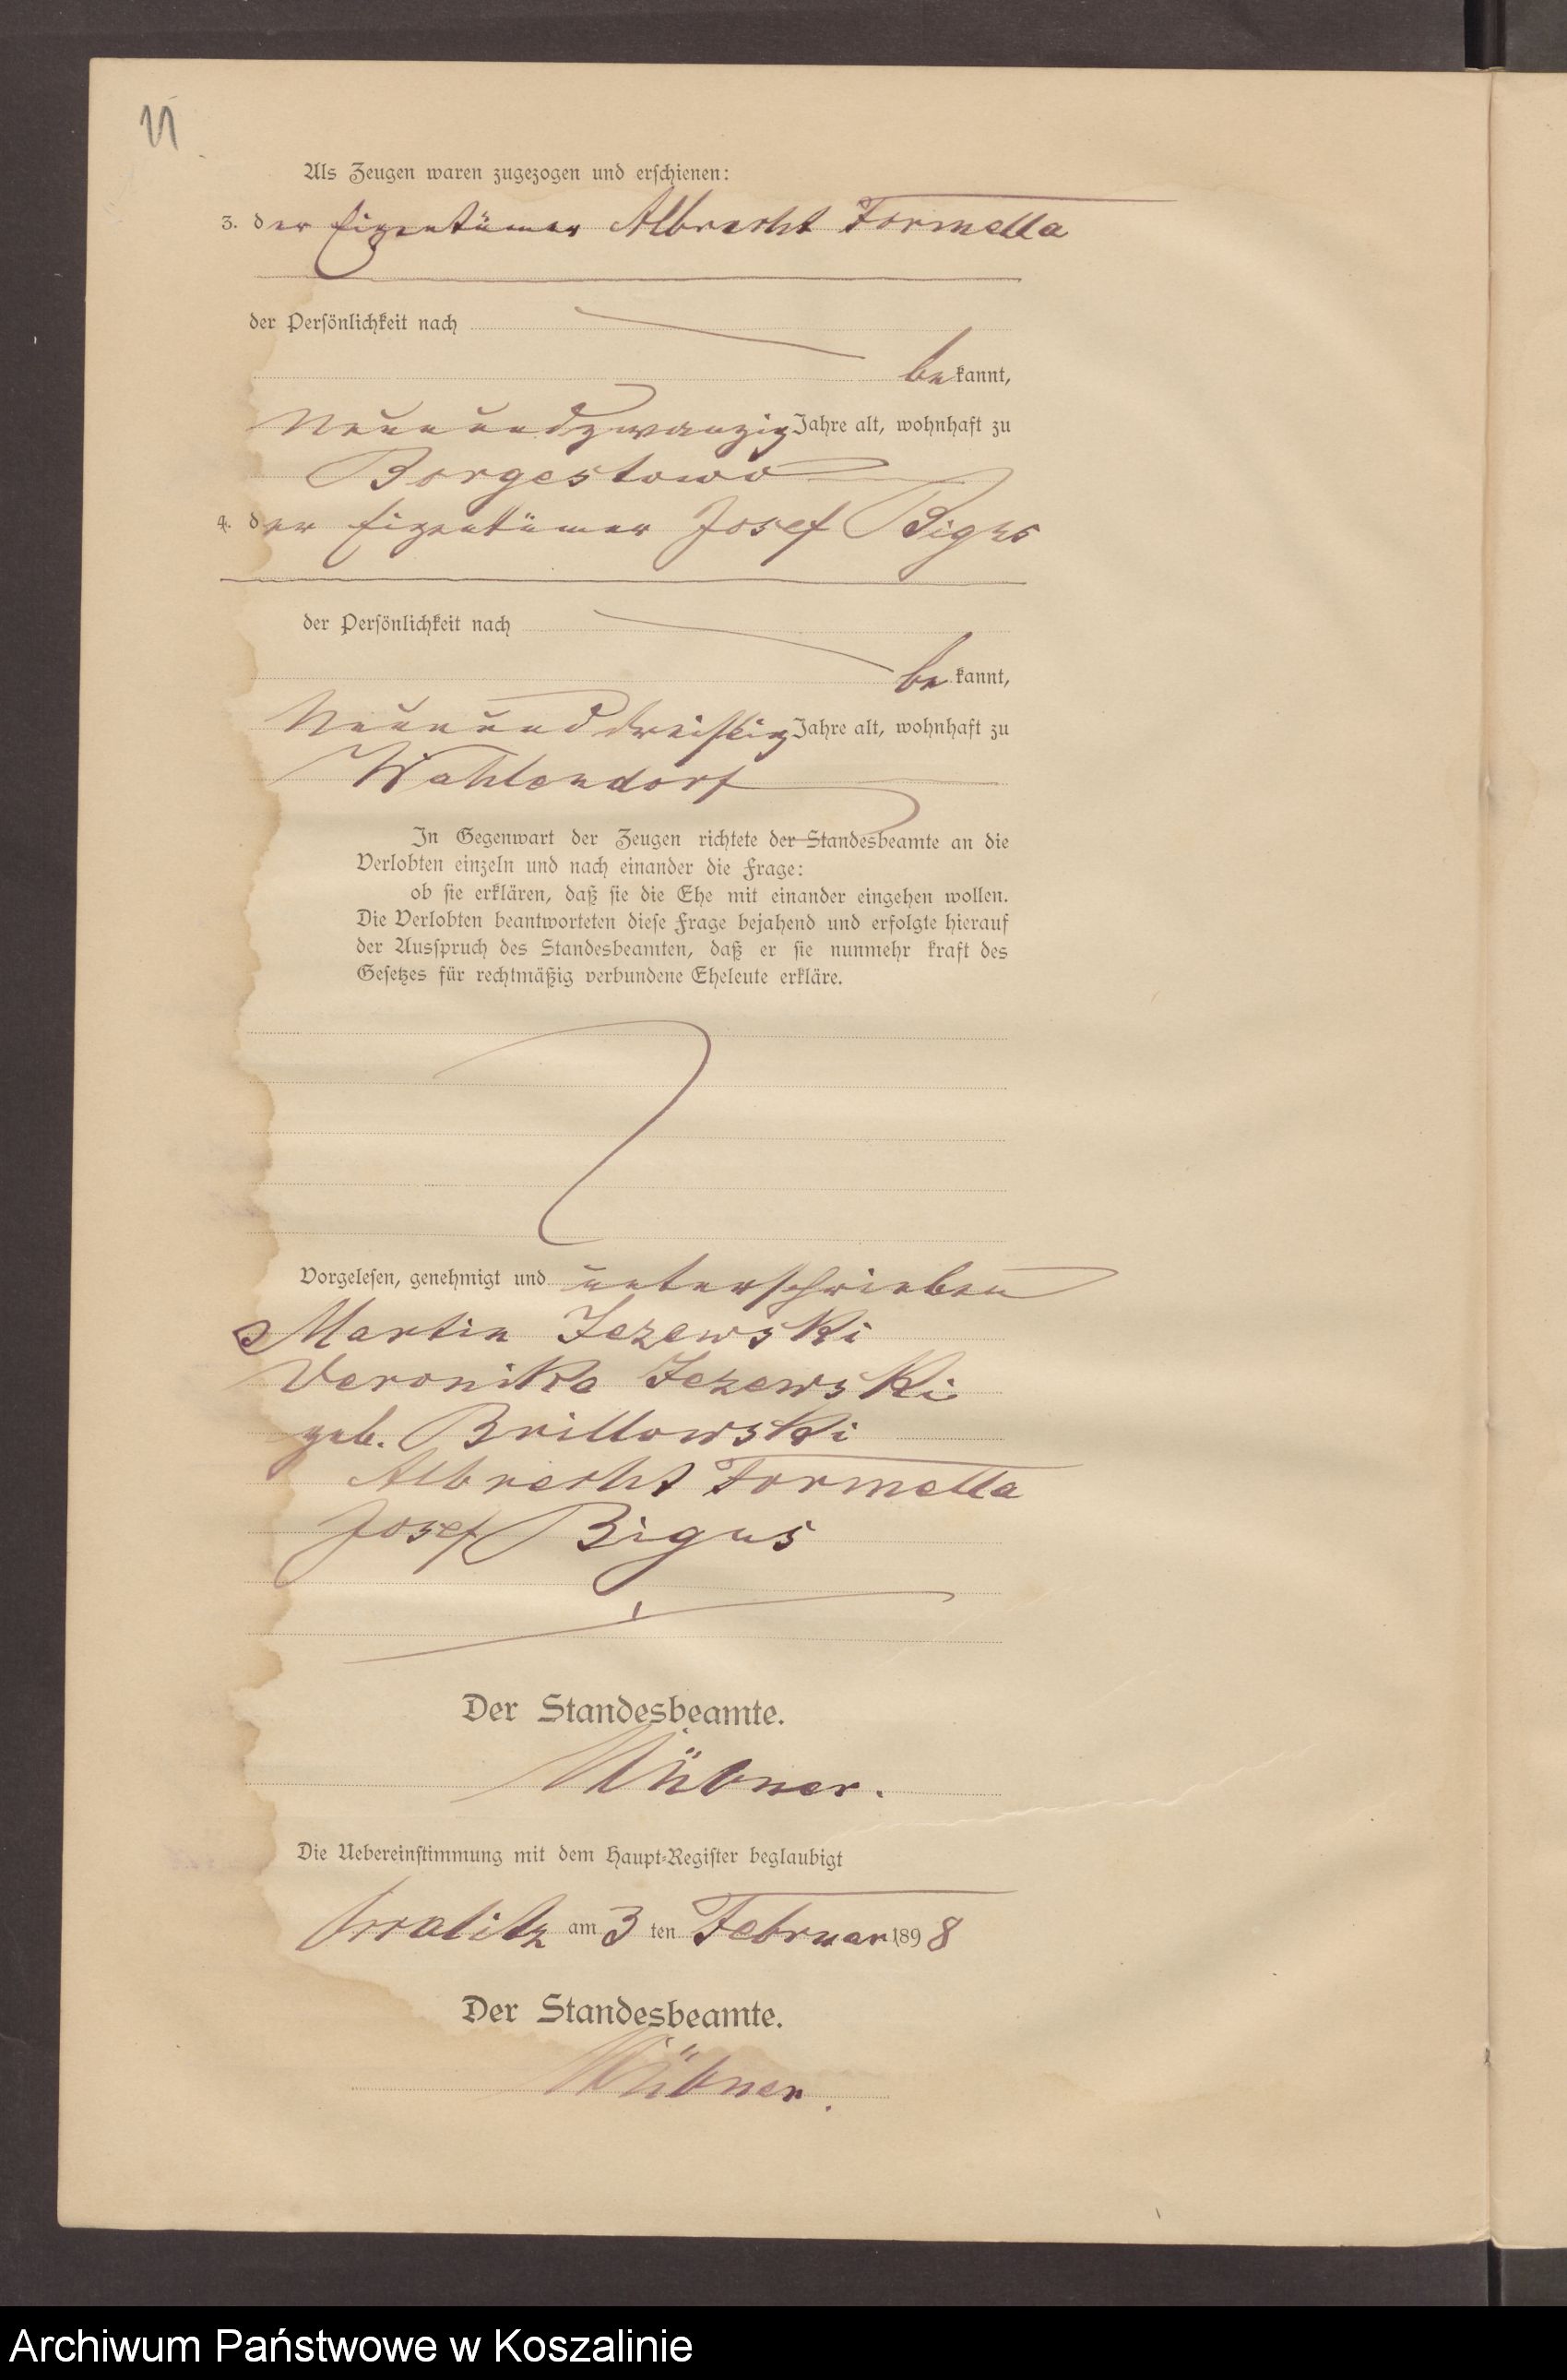 11
Als Zeugen waren zugezogen und erschienen:
3. der Eigentümer Albrecht Formella
der Persönlichkeit nach
bekannt,
Neunundzwanzig Jahre alt, wohnhaft zu
Borgestowo
4. der Eigentümer Josef Bigus
der Persönlichkeit nach
bekannt,
Neununddreißig Jahre alt, wohnhaft zu
Wahlendorf
In Gegenwart der Zeugen richtete der Standesbeamte an die
Verlobten einzeln und nach einander die Frage:
ob sie erklären, daß sie die Ehe mit einander eingehen wollen.
Die Verlobten beantworteten diese Frage bejahend und erfolgte hierauf
der Ausspruch des Standesbeamten, daß er sie nunmehr kraft des
Gesetzes für rechtmäßig verbundene Eheleute erkläre.
Vorgelesen, genehmigt und unterschrieben
Martin Jezewski
Veronika Jezewski
geb. Brillowski
Albrecht Formella
Josef Bigus
Der Standesbeamte.
Die Uebereinstimmung mit dem Haupt-Register beglaubigt
am 3 ten Februar 1898
Der Standesbeamte.
Archiwum Państwowe w Koszalinie